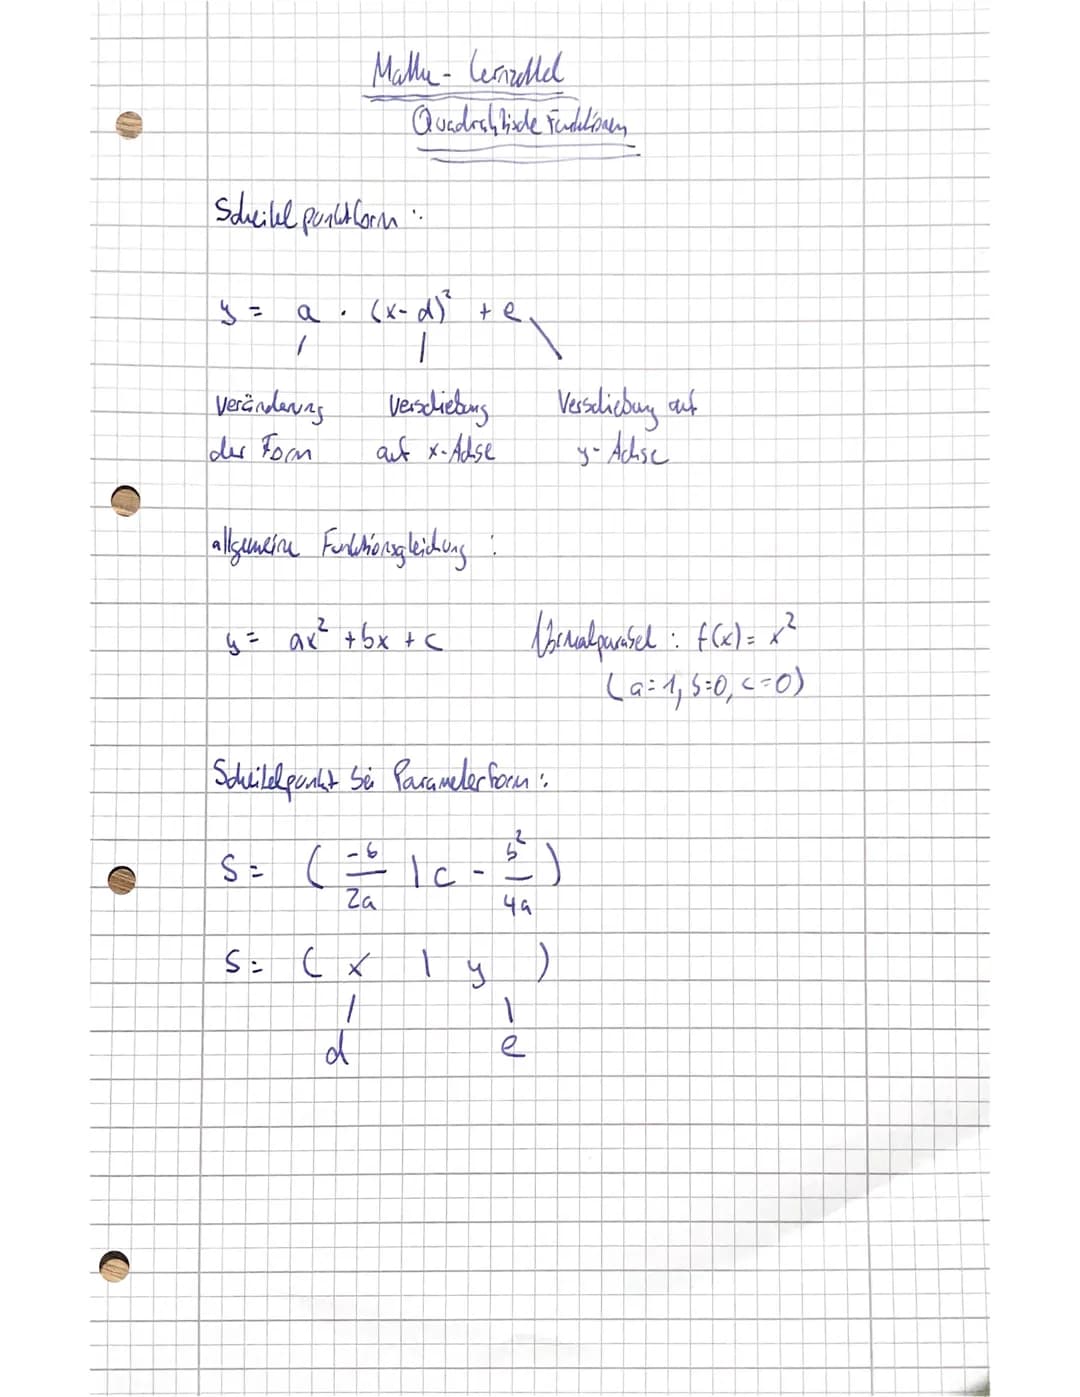 Mathe - Lernzettel
Quadratische Funktionen
Scheitelpunktform :
y = a · (x-d)² + e
Veränderung Verschiebung Verschiebung auf
der Form auf x-Achse y-Achse
allgemeine Funktionsgleichung :
y = ax² + bx + c Normalparabel : f(x) = x²
(a=1, b=0, c=0)
Scheitelpunkt bei Parameterform :
S = ( -b/2a | c - b²/4a )
S = ( x | y )
d e